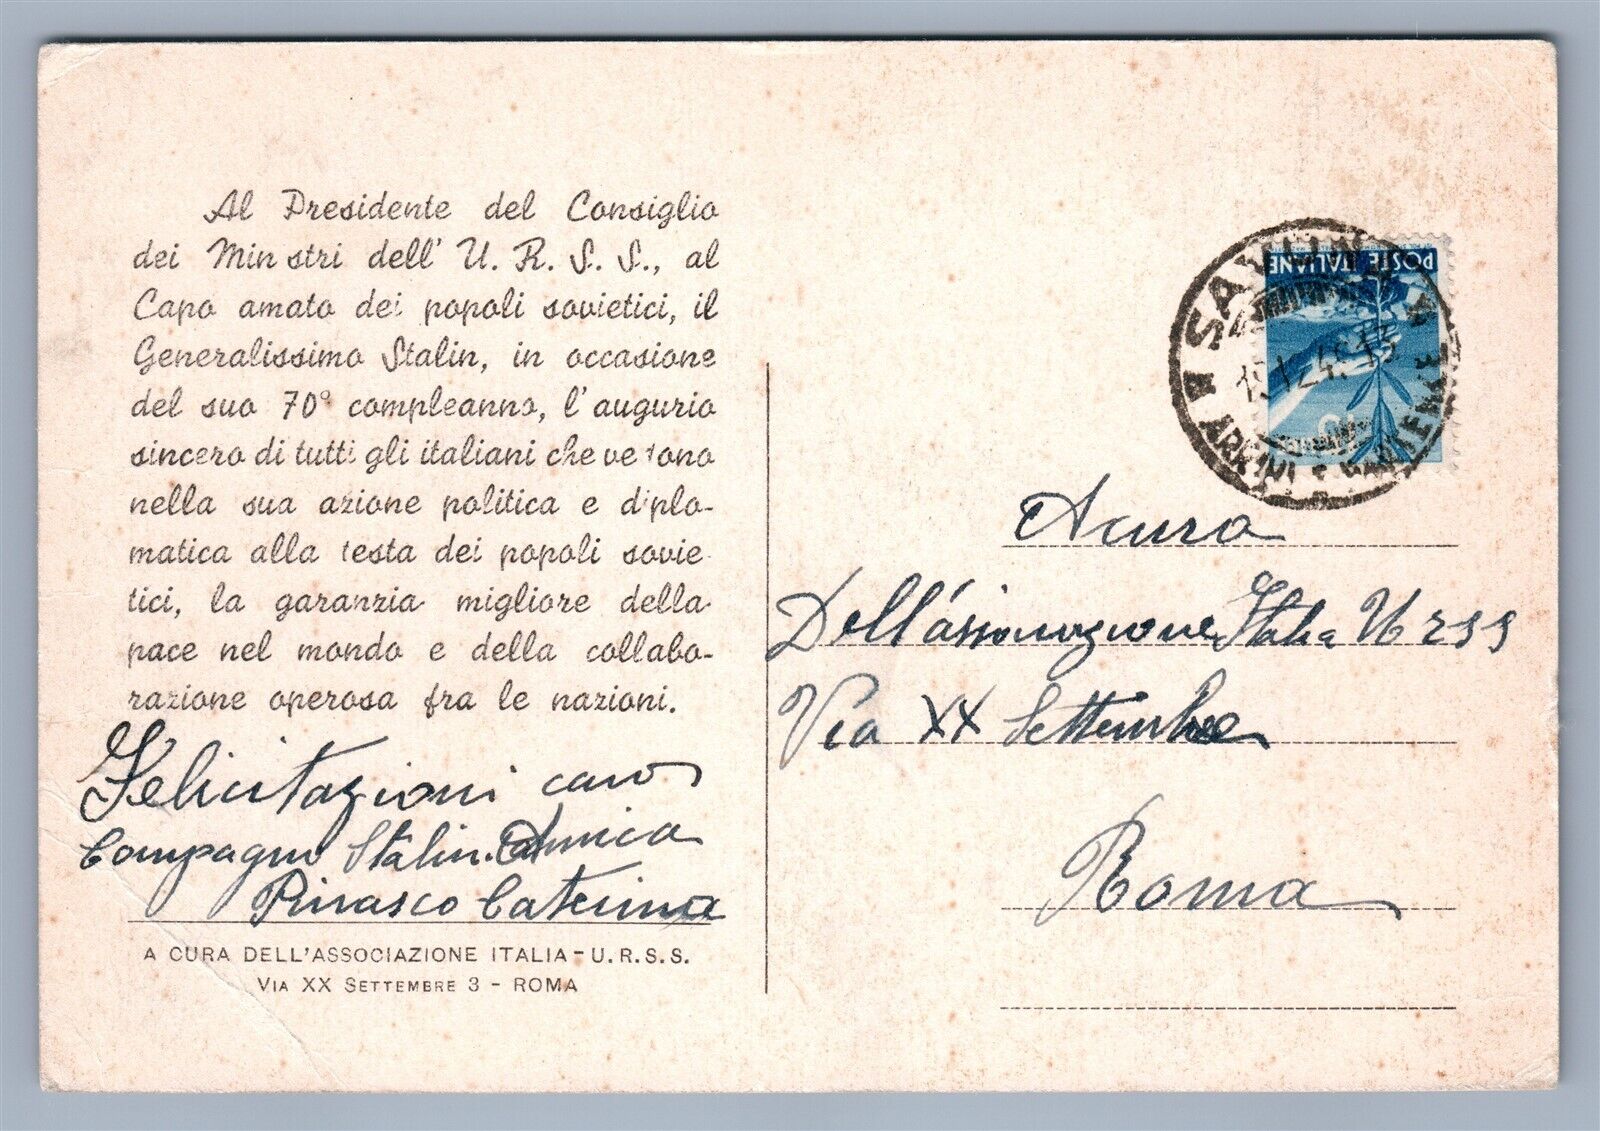 Al Presidente del Consiglio
dei Min stri dell' U. R. S. S., al
Capo amato dei popoli sovietici, il
Generalissimo Stalin, in occasione
del suo 70° compleanno, l'augurio
sincero di tutti gli italiani che vedono
nella sua azione politica e d'plo-
matica alla testa dei popoli sovie
tici, la garanzia migliore della
pace nel mondo e della collabo-
razione operosa fra le nazioni.
Felicitazioni caro
Compagno Stalin. Amica
Rinasco Caterina
A CURA DELL'ASSOCIAZIONE ITALIA - U.R.S.S.
VIA XX SETTEMBRE 3 - ROMA
POSTE ITALIANE
Acura
Italia Urss
Via XX Settembre
Roma